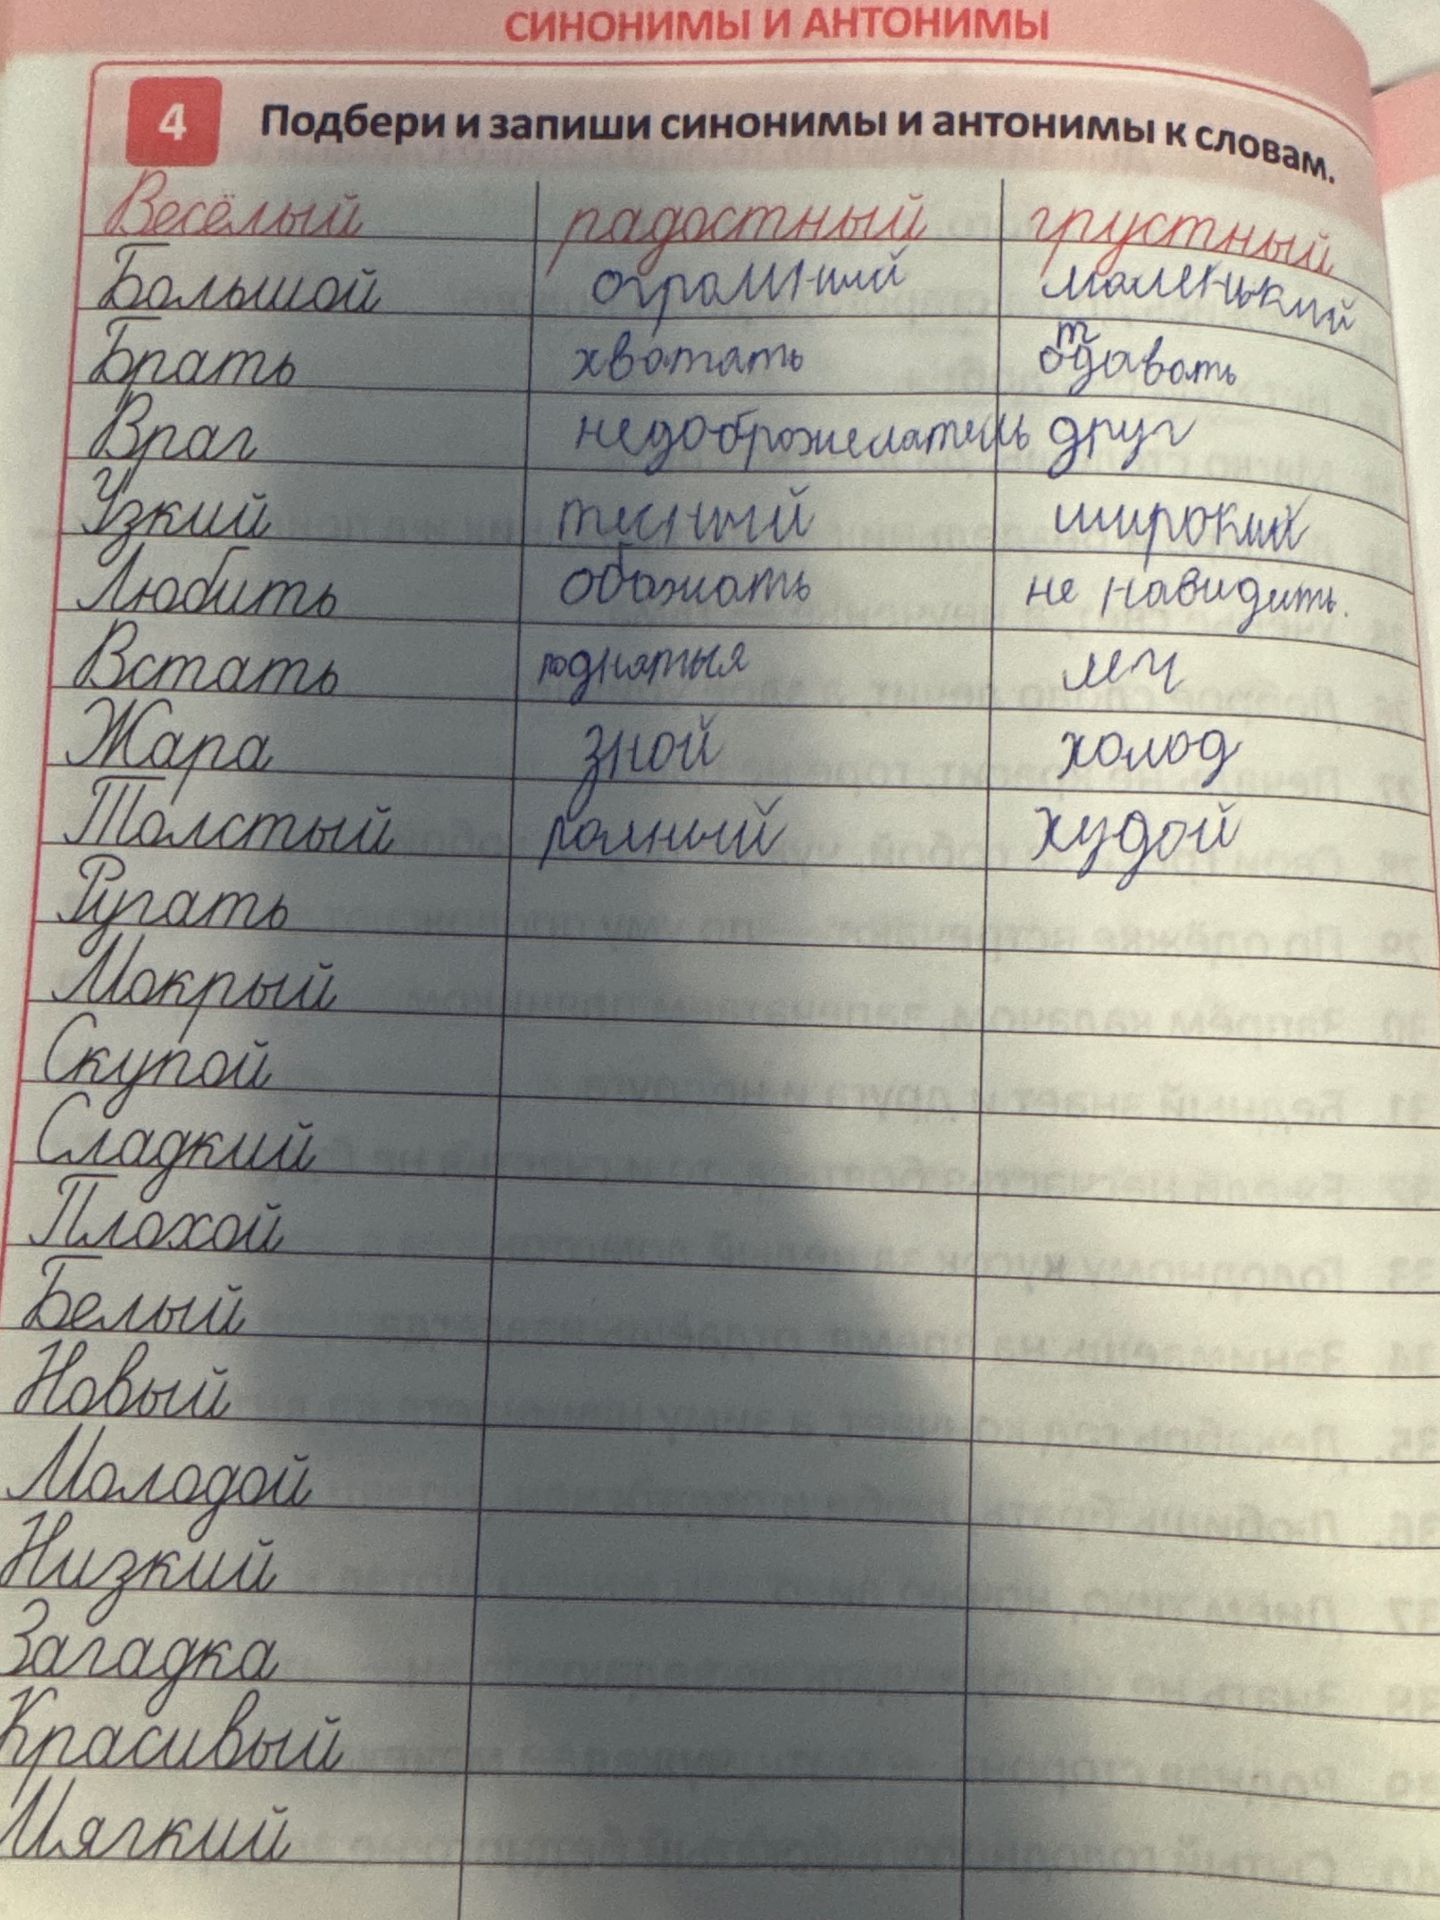 СИНОНИМЫ И АНТОНИМЫ
4 Подбери и запиши синонимы и антонимы к словам.
Весёлый радостный грустный
Большой огромный маленький
Брать хватать отдавать
Враг недоброжелатель друг
Узкий тесный широкий
Любить обожать не навидить.
Встать поднятыя леч
Жара зной холод
Толстый полный худой
Ругать
Мокрый
Скупой
Сладкий
Плохой
Белый
Новый
Молодой
Низкий
Загадка
Красивый
Мягкий